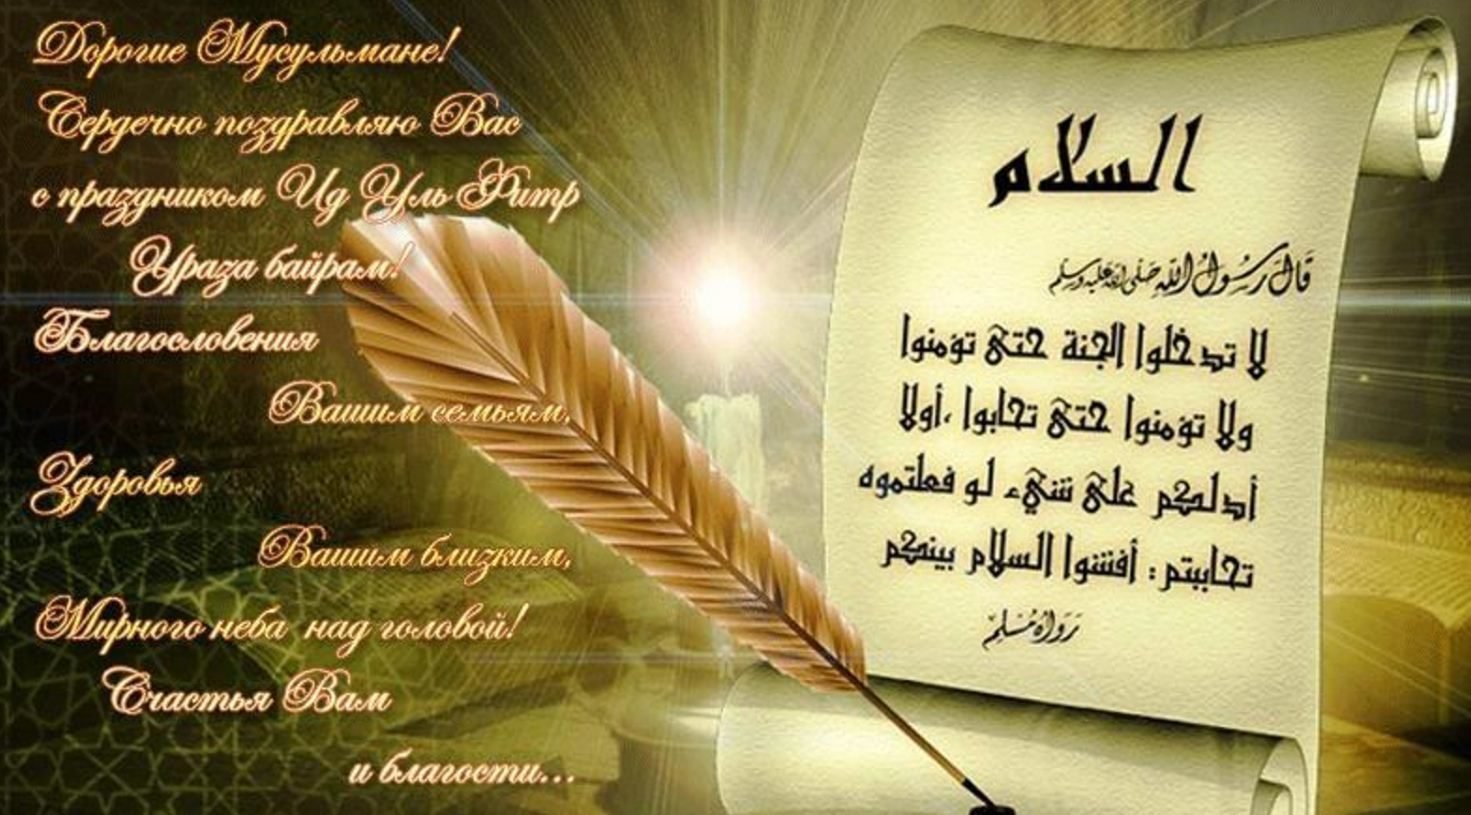 Дорогие Мусульмане!
Сердечно поздравляю Вас
с праздником Ид Уль Фитр
Ураза байрам!
Благословения
Вашим семьям,
Здоровья
Вашим близким,
Мирного неба над головой!
Счастья Вам
и благости...
السلام
قَالَ رَسُولُ اللهِ صَلَّى اللهُ عَلَيْهِ وَسَلَّمَ
لا تدخلوا الجنة حتى تؤمنوا
ولا تؤمنوا حتى تحابوا ،أولا
أدلكم على شيء لو فعلتموه
تحاببتم : أفشوا السلام بينكم
رَوَاهُ مُسْلِم